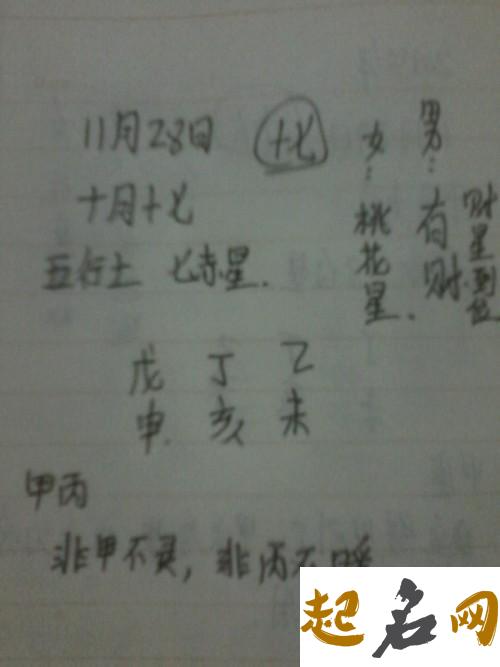 11月28日 十七
十月十七
五行土 七赤星.
女：桃花星.
男：有财
财星到位
戊 丁 乙
申. 亥 未
甲丙
非甲不灵，非丙不暖
起名网